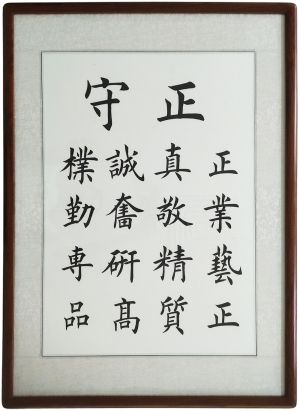 守正
樸誠真正
勤奮敬業
専研精藝
品高質正